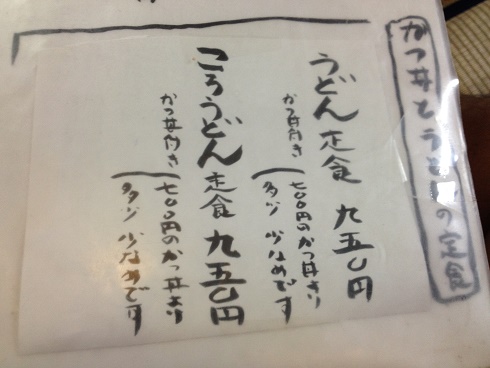 かつ丼とうどんの定食
うどん定食 九五〇円
かつ丼付き
七〇〇円のかつ丼より
多少 少なめです
ころうどん定食 九五〇円
かつ丼付き
七〇〇円のかつ丼より
多少 少なめです